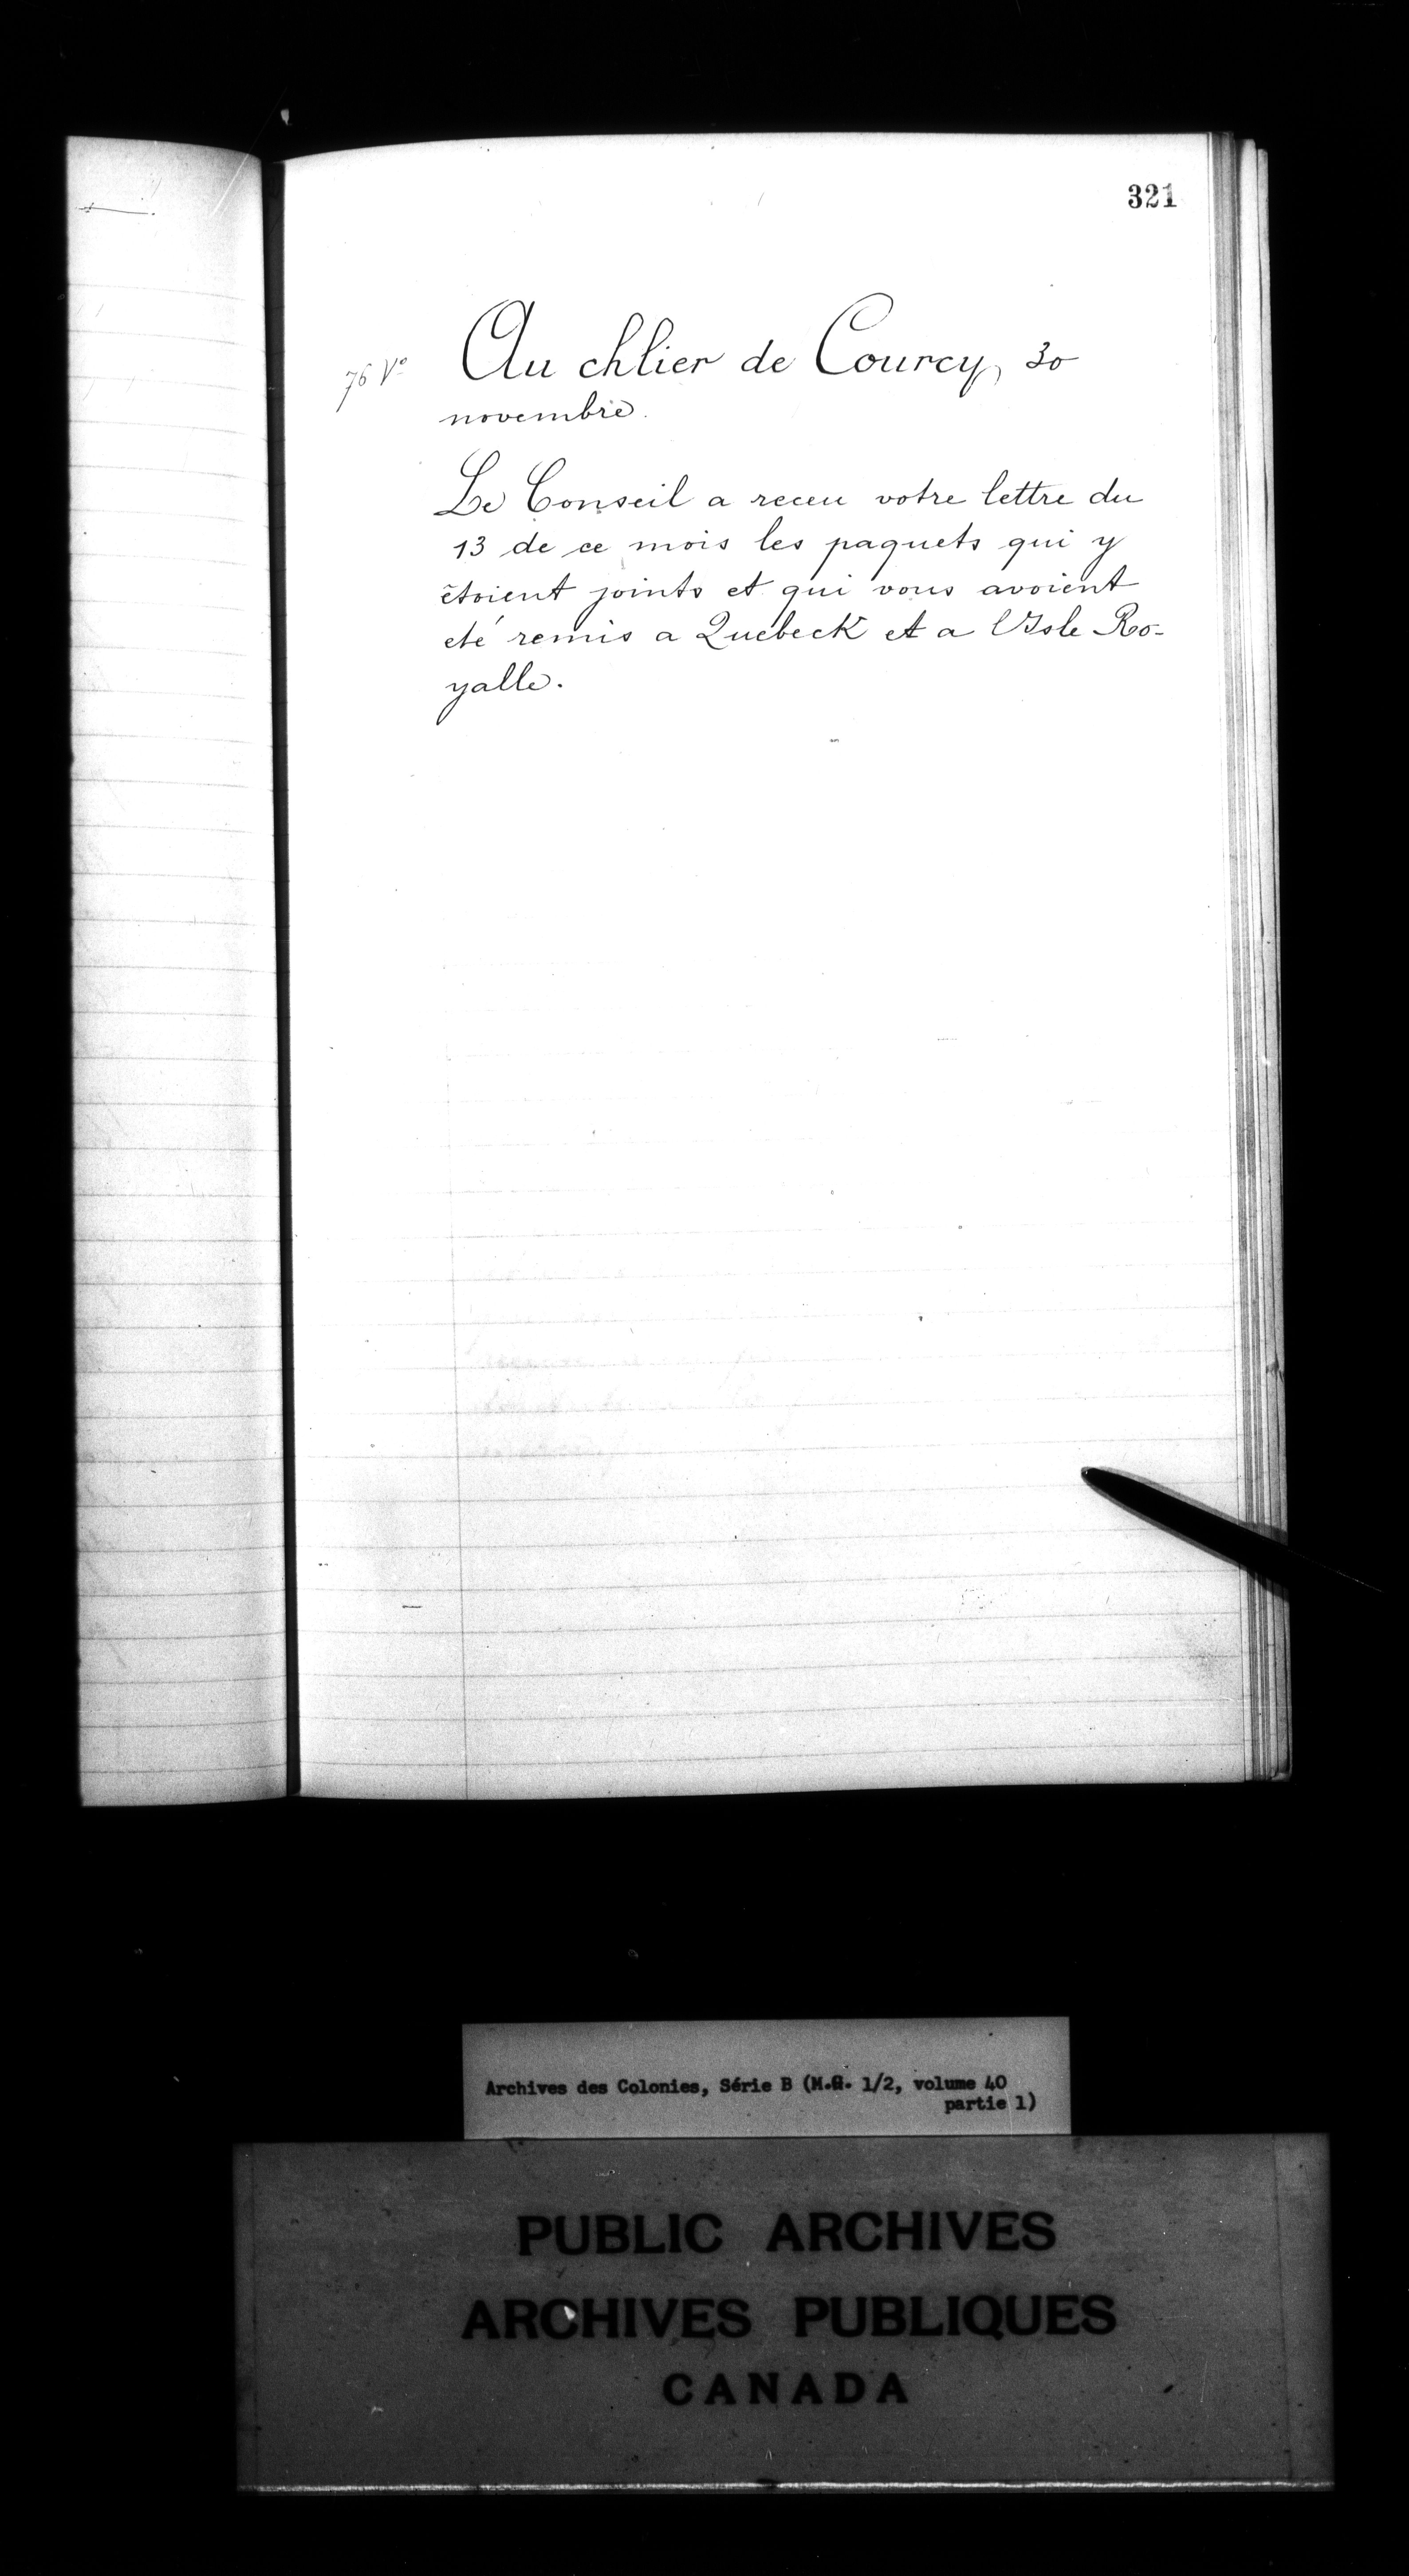 321
76 Vº Au chlier de Courcy, 30
novembre.
Le Conseil a receu votre lettre du
13 de ce mois les paquets qui y
étoient joints et qui vous avoient
eté remis a Quebeck et a l'Isle Ro-
yalle.
Archives des Colonies, Série B (M.G. 1/2, volume 40
partie 1)
PUBLIC ARCHIVES
ARCHIVES PUBLIQUES
CANADA